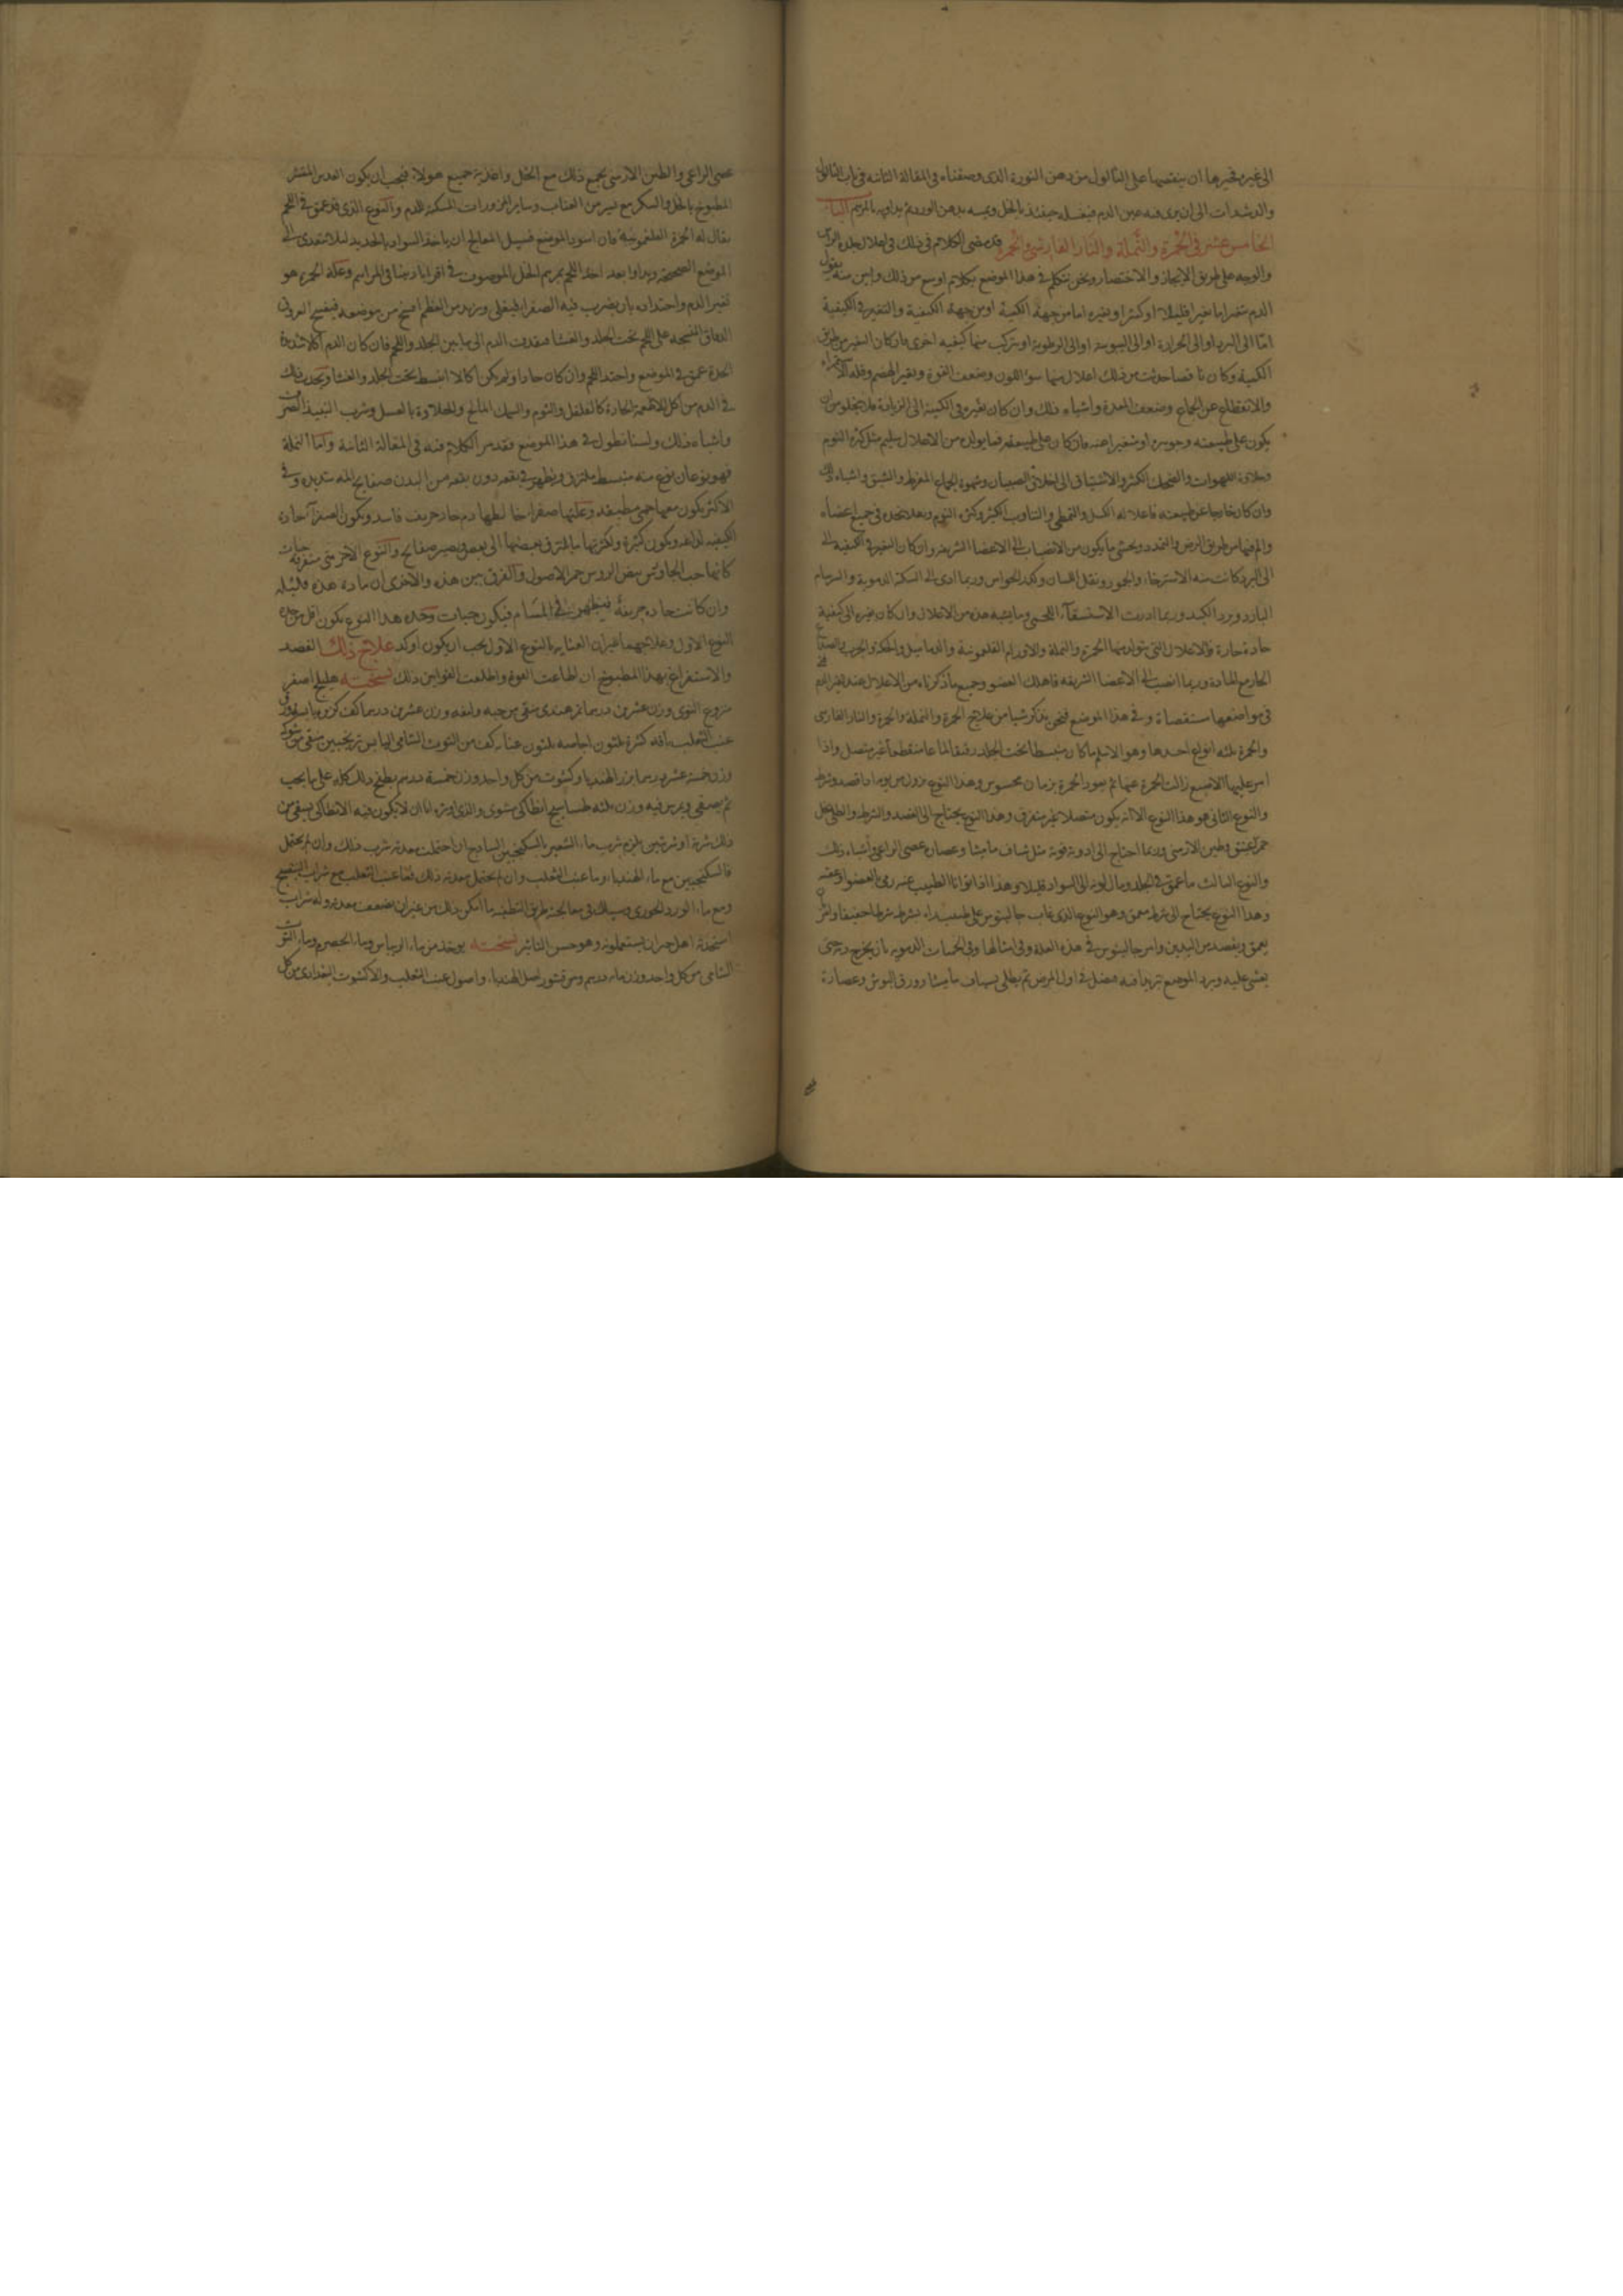 الى غيره فخيرها ان ينقصها على الثالول من دهن النورة الذى وصفناه فى المقالة الثانية فى باب الثاليل
الى ان يرى فيه عين الدم فيغسله حينئذ بالخل ويمسه بدهن الورد ثم يداويه بالمرهم الباب
الخامس عشر فى الحمرة والنملة والنار الفارسى والجمرة قد مضى الكلام فى ذلك فى اعلال جلدة الراس
والوجه على طريق الايجاز والاختصار ونحن نتكلم فى هذا الموضع بكلام اوسع من ذلك وابين منه نقول
الدم متغير اما تغيرا قليلا او كثيرا وتغيره اما من جهة الكمية او من جهة الكيفية والتغير فى الكيفية
اما الى البرد او الى الحرارة او الى اليبوسة او الى الرطوبة او يتركب منها كيفية اخرى فان كان التغير من طريق
الكمية وكان ناقصا حدثت من ذلك اعلال منها سوء اللون وضعف القوة وتغير الهضم وقلة الاستمراء
والانقطاع عن الجماع وضعف المعدة واشباه ذلك وان كان تغيره فى الكمية الى الزيادة فلا يخلو من ان
يكون على طبيعته وجوهره او متغيرا عنه فان كان على طبيعته فما يولده من الاعلال سليم مثل كثرة النوم
وحلاوة اللهوات والضحك الكثير والاشتياق الى اخلاق الصبيان وشهوة الجماع المفرط والشبق واشباه ذلك
وان كان خارجا عن طبيعته فاعلاله الكسل والتمطى والتثاوب الكثير وكثرة النوم وثقلا يجده فى جميع اعضاه
والم فيها من طريق الرض والتمدد ويخشى ما يكون من الانصباب الى الاعضا الشريفة وان كان التغير فى الكيفية
الى البرد كانت منه الاسترخاء والجمود وثقل اللسان وكدر الحواس وربما ادى الى السكتة الدموية والسرسام
البارد وبرد الكبد وربما اورثت الاستسقاء اللحمى وما يشبه هذه من الاعلال وان كان تغيره الى كيفية
حادة حارة فالاعلال التى يتولد منها الحمرة والنملة والاورام الفلغمونية والدماميل والحكة والجرب والصداع
الحار مع المادة وربما انصب الى الاعضا الشريفة فاهلك العضو وجميع ما ذكرناه من الاعلال عند تغير الدم
فى مواضعها مستقصاة وفى هذا الموضع فنحن نذكر شيا من علاج الحمرة والنملة والجمرة والنار الفارسى
والحمرة ثلثة انواع احدها وهو الاسلم ما كان منبسطا تحت الجلد رقيقا لماعا منقطعا غير متصل واذا
امر عليها الاصبع زالت الحمرة عنها ثم يعود الحمرة بزمان محسوس وهذا النوع يزول من يومه اذا فصد وشرط
والنوع الثانى هو هذا النوع الا انه يكون متصلا غير متفرق وهذا النوع يحتاج الى الفصد والشرط والطلى بخل
خمر عتيق وطين الارمنى وربما احتاج الى ادوية قوية مثل شياف ماميثا وعصارة عصى الراعى واشباه ذلك
والنوع الثالث ما عمق فى الجلد ومال لونه الى السواد قليلا وهذا اذا توانا الطبيب عنه رمى بالعضو او عفنه
وهذا النوع يحتاج الى شرط معمق وهو النوع الذى عاب جالينوس على طبيب شرطه شرطا خفيفا ولم
يعمق ويفصد من اليدين وامر جالينوس فى هذه العلة وفى امثالها وفى الحميات الدموية بان يخرج دم حتى
يغشى عليه ويبرد الموضع تبريدا فيه فضل فى اول المرض ثم يطلى بشياف ماميثا وورق البوش وعصارة
عصى الراعى والطين الارمنى يجمع ذلك مع الخل واغذية جميع هولاء فيجب ان يكون العدس المقشر
المطبوخ بالخل والسكر مع شى من العناب وساير المزورات المسكنة للدم والنوع الذى قد عمق فى اللحم
يقال له الحمرة الفلغمونية فان اسود الموضع فسبيل المعالج ان ياخذ السواد بالحديد ليلا يتعدى الى
الموضع الصحيح ويداوا بعد اخذ اللحم بمرهم الخل الموصوف فى اقراباديننا فى المراهم وعلة الحمرة هو
تغير الدم واحتداده بان يضرب فيه الصفرا فيغلى ويزيد من العظم اضيق من موضعه فيفتح العروق
الدقاق المنسجه على اللحم تحت الجلد والغشا فيقذف الدم الى ما بين الجلد واللحم فان كان الدم اكالا شديد
الحدة عمق فى الموضع واحتد اللحم وان كان حادا ولم يكن اكالا انبسط تحت الجلد والغشا ويحدث ذلك
فى الدم من اكل الاطعمة الحارة كالفلفل والثوم والسمك المالح والحلاوة بالعسل وشرب النبيذ الصرف
واشباه ذلك ولسنا نطول فى هذا الموضع فقد مر الكلام فيه فى المقالة الثانية واما النملة
فهو نوعان نوع منه منبسط ملتزق ويظهر فى بقعه دون بقعه من البدن صفايح المه شديده وفى
الاكثر يكون معها حمى مطبقه وعلتها صفرا خالطها دم حار حريف فاسد ويكون الصفرا حادة
الكيفيه لذاعه ويكون كثيرة ولكثرتها يلتزق بعضها الى بعض ويصير صفايح والنوع الاخر شى متفرقه حبات
كانها حب الجاورس بيض الروس حمر الاصول والفرق بين هذه والاخرى ان مادة هذه قليله
وان كانت حاده حريفة فيظهر فى المسام فيكون حبات وحده هذا النوع يكون اقل من حده
النوع الاول وعلاجهما غير ان العناية بالنوع الاول يجب ان يكون اوكد علاج ذلك الفصد
والاستفراغ بهذا المطبوخ ان اطاعت القوة واطلقت القوانين ذلك نسخته هليلج اصفر
منزوع النوى وزن عشرين درهما تمر هندى منقى من حبه وليفه وزن عشرين درهما كف كزبره يابسه ورق
عنب الثعلب باقه كثيرة ثلثون اجاصه ثلثون عنابه كف من التوث الشامى اليابس ترنجبين منقى من شوكه
وزن خمسة عشر درهما بزر الهندبا وكشوث من كل واحد وزن خمسة درهم يطبخ ذلك كله على ما يجب
ثم يصفى ويمرس فيه وزن ثلثه طساسيج انطاكى مشوى والذى اوثره انا ان لا يكون فيه الانطاكى يسقى من
ذلك شربة او شربتين ثم يلزم شرب ماء الشعير بالسكنجبين الساذج ان احتملت معدته شرب ذلك وان لم يحتمل
فالسكنجبين مع ماء الهندباء وماء عنب الثعلب وان لم يحتمل معدته ذلك فماء عنب الثعلب مع شراب البنفسج
ومع ماء الورد الجورى وسبيلك فى معالجته طريق التطفية ما امكن ذلك من غير ان يضعف معدته وله شراب
استخدثه اهل حران يستعملونه وهو حسن التاثير نسخته يوخذ من ماء الريباس وماء الحصرم وماء التوت
الشامى من كل واحد وزن مائه درهم ومن قشور اصل الهندباء واصول عنب الثعلب والاكشوث البغدادى من كل